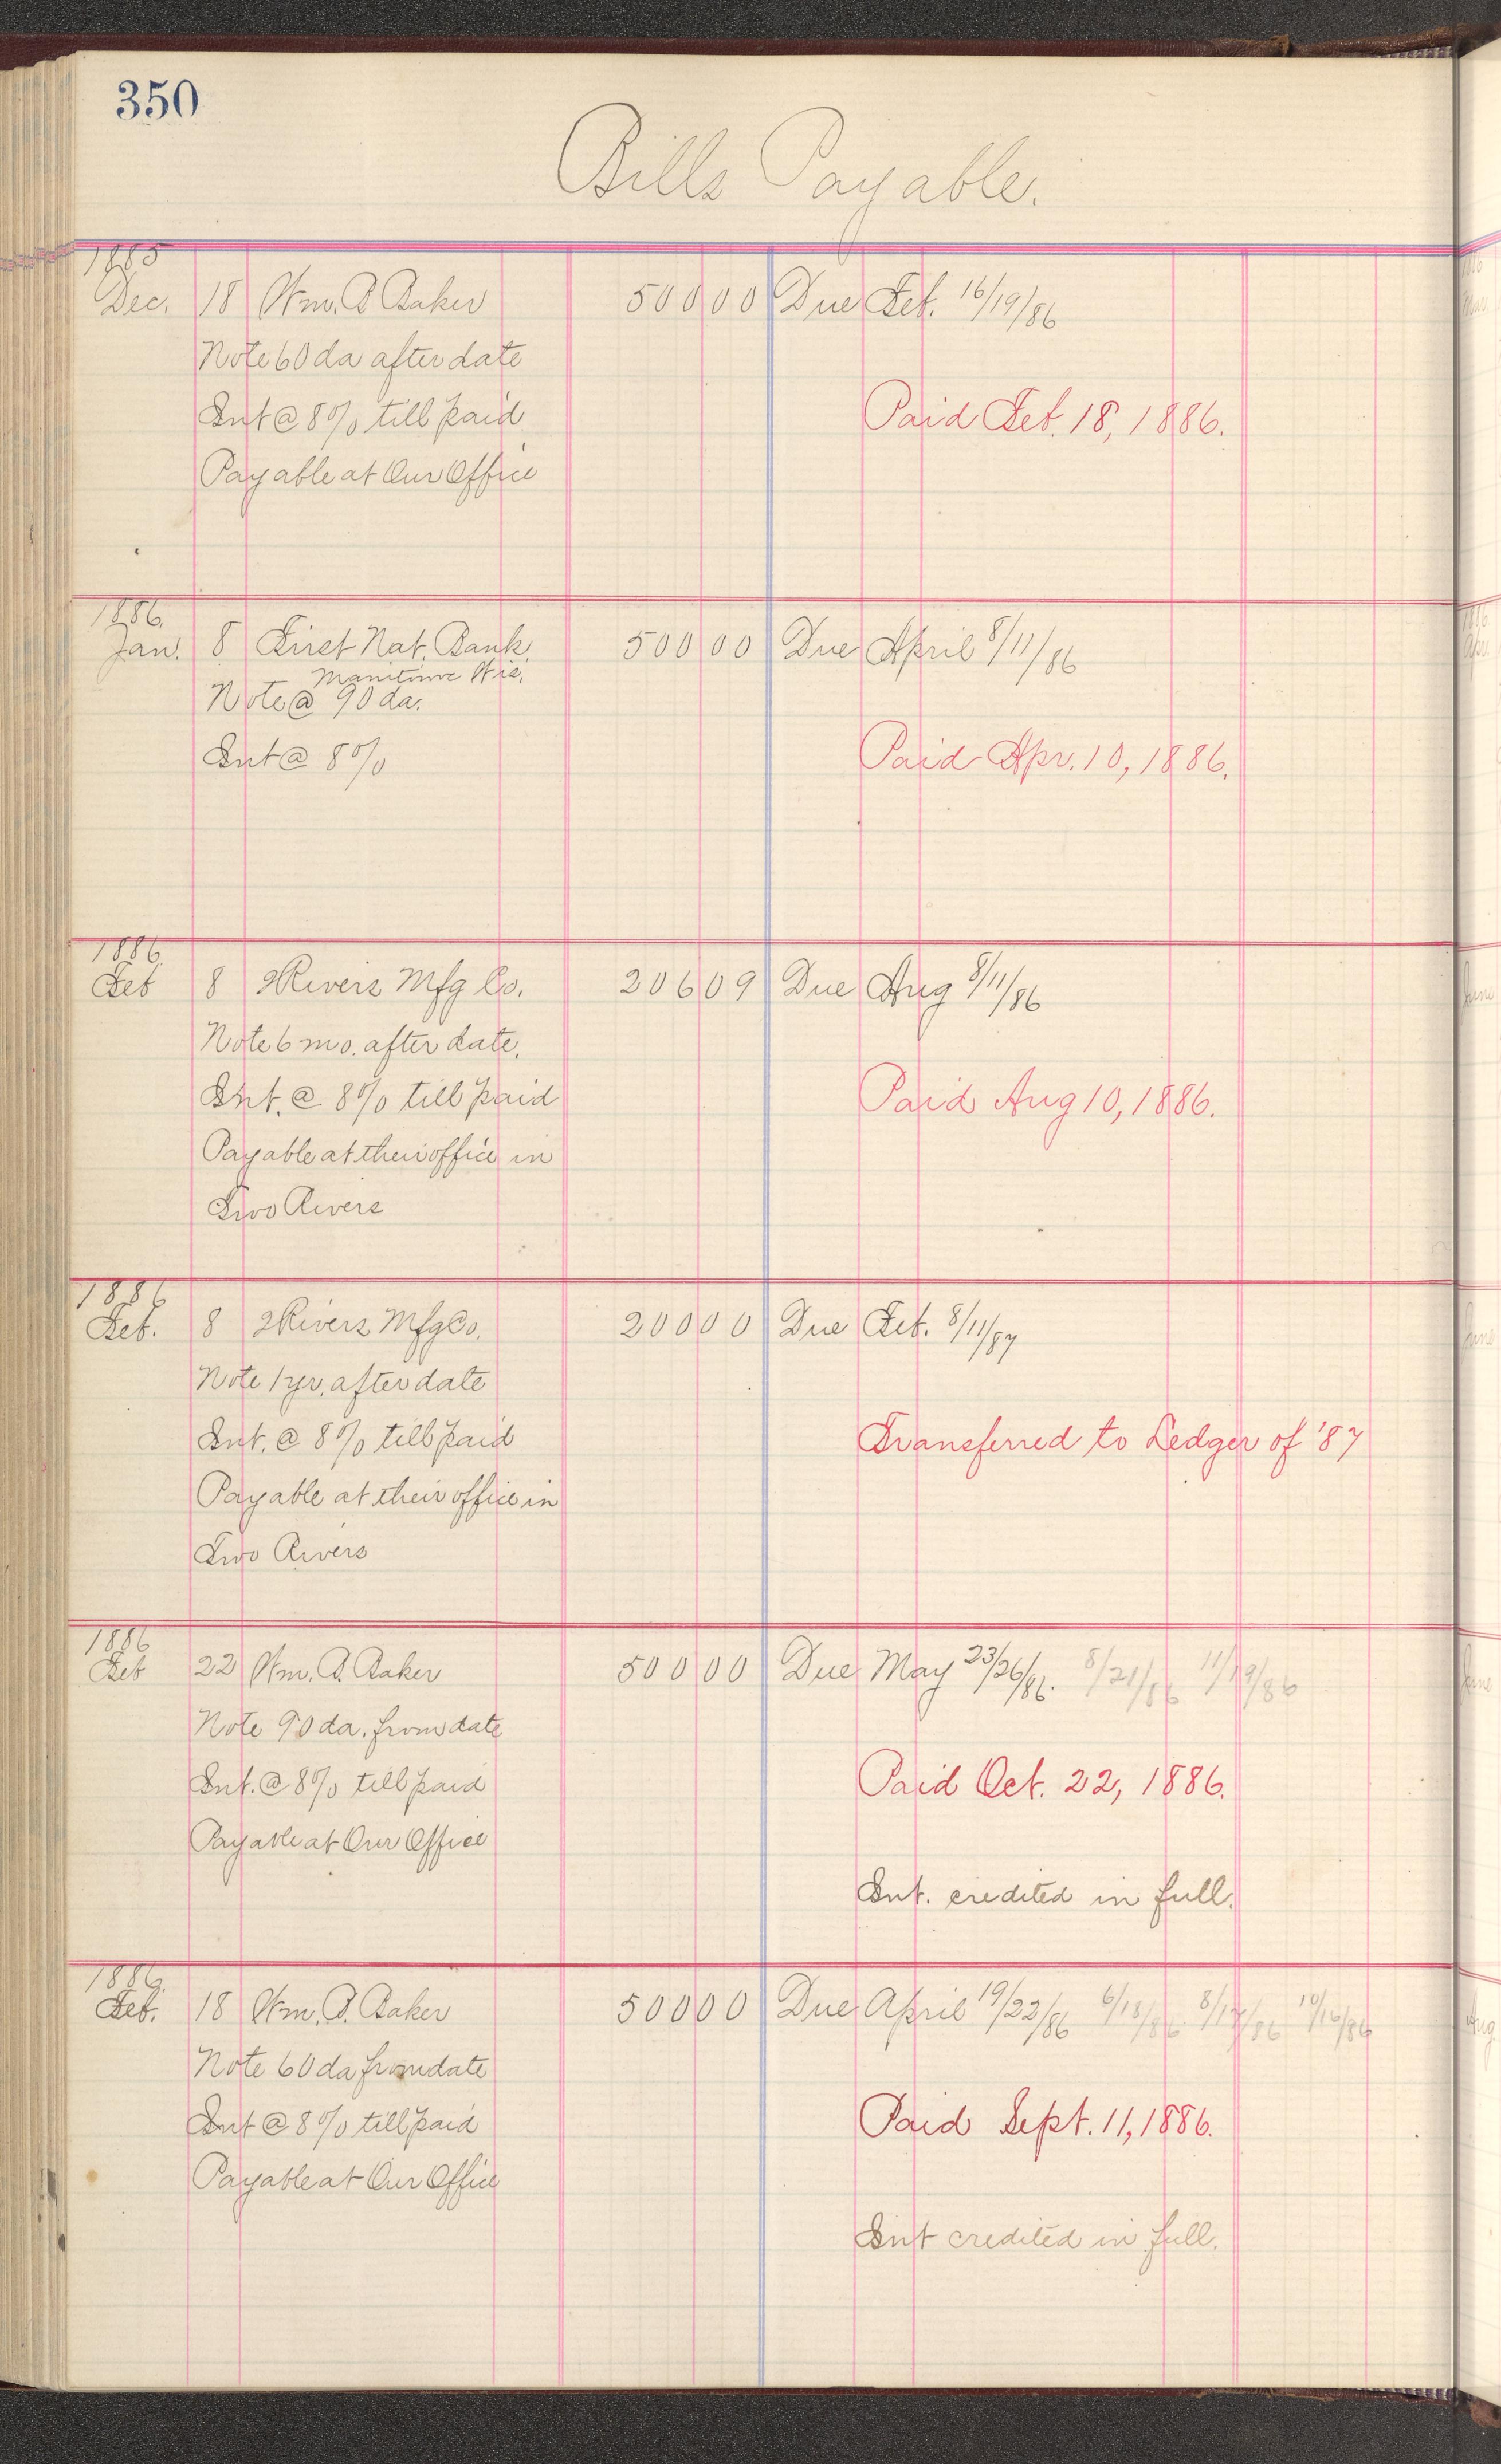 350
Bills Payable.
1885
Dec. 18 Wm. B Baker 500 00 Due Feb. 16/19/86
Note 60 da after date
Int @ 8% till paid Paid Feb. 18, 1886.
Payable at Our Office
1886.
Jan. 8 First Nat. Bank 500 00 Due April 8/11/86
Manitowoc Wis.
Note @ 90 da.
Int @ 8% Paid Apr. 10, 1886.
1886
Feb 8 2Rivers Mfg Co. 206 09 Due Aug 8/11/86
Note 6 mo. after date.
Int. @ 8% till paid Paid Aug 10, 1886.
Payable at their office in
Two Rivers
1886
Feb. 8 2Rivers Mfg Co. 200 00 Due Feb. 8/11/87
Note 1 yr. after date
Int. @ 8% till paid Transferred to Ledger of '87
Payable at their office in
Two Rivers
1886
Feb 22 Wm. B. Baker 500 00 Due May 23/26/86. 8/21/86 11/19/86
Note 90 da. from date
Int. @ 8% till paid Paid Oct. 22, 1886.
Payable at Our Office
Int. credited in full.
1886.
Feb. 18 Wm. B. Baker 500 00 Due April 19/22/86 6/18/86 8/17/86 10/16/86
Note 60 da from date
Int @ 8% till paid Paid Sept. 11, 1886.
Payable at Our Office
Int credited in full.